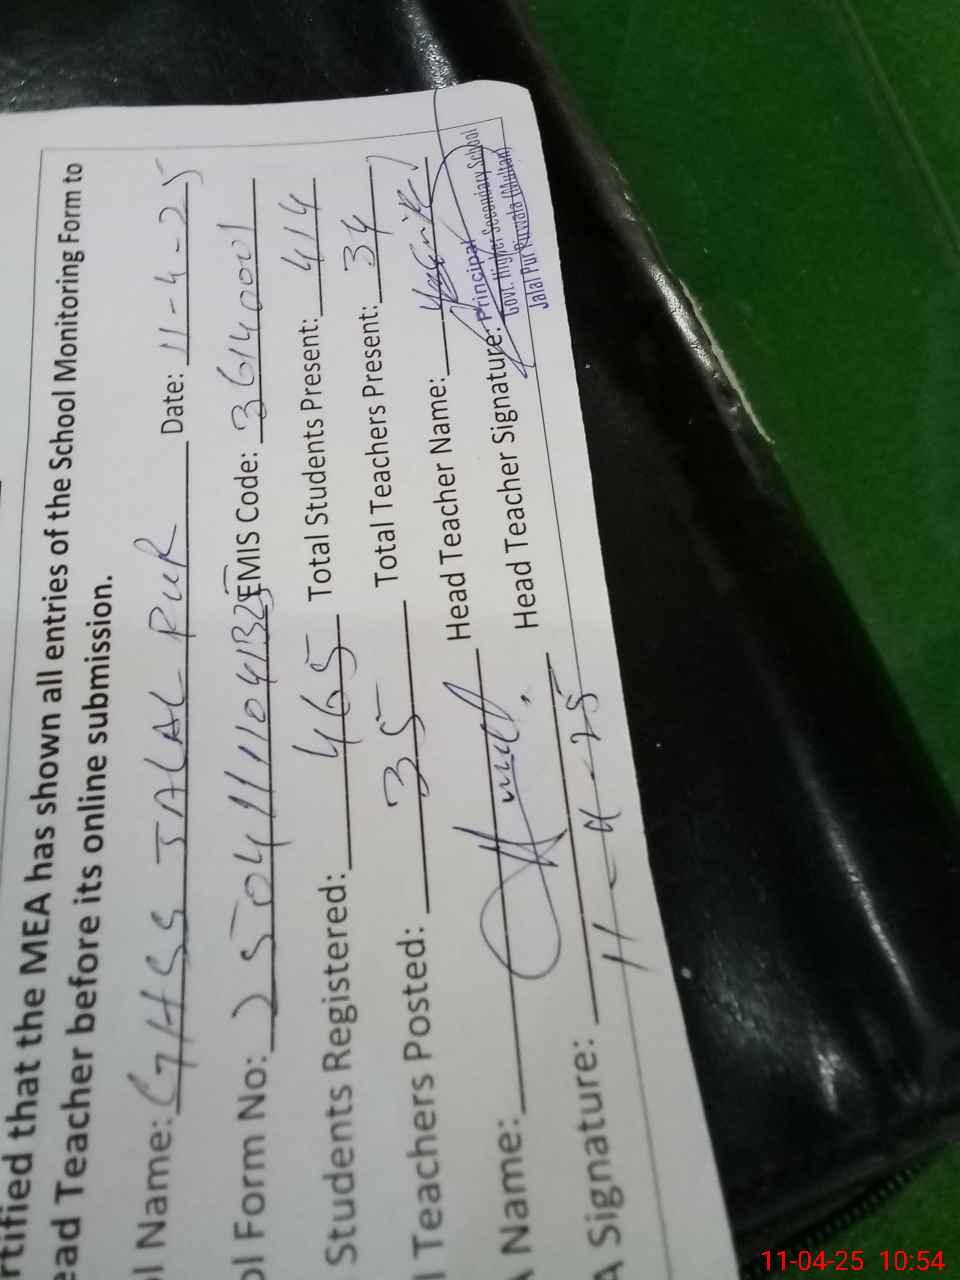 rtified that the MEA has shown all entries of the School Monitoring Form to
ead Teacher before its online submission.
ol Name: GHSS JALAL PUR Date: 11-4-25
ol Form No: 25041111041325 EMIS Code: 36140001
Students Registered: 465 Total Students Present: 414
l Teachers Posted: 35 Total Teachers Present: 34
Name: Head Teacher Name:
A Signature: 11-4-25 Head Teacher Signature: Principal
Govt. Higher Secondary School
Jalal Pur Pirwala (Multan)
11-04-25 10:54